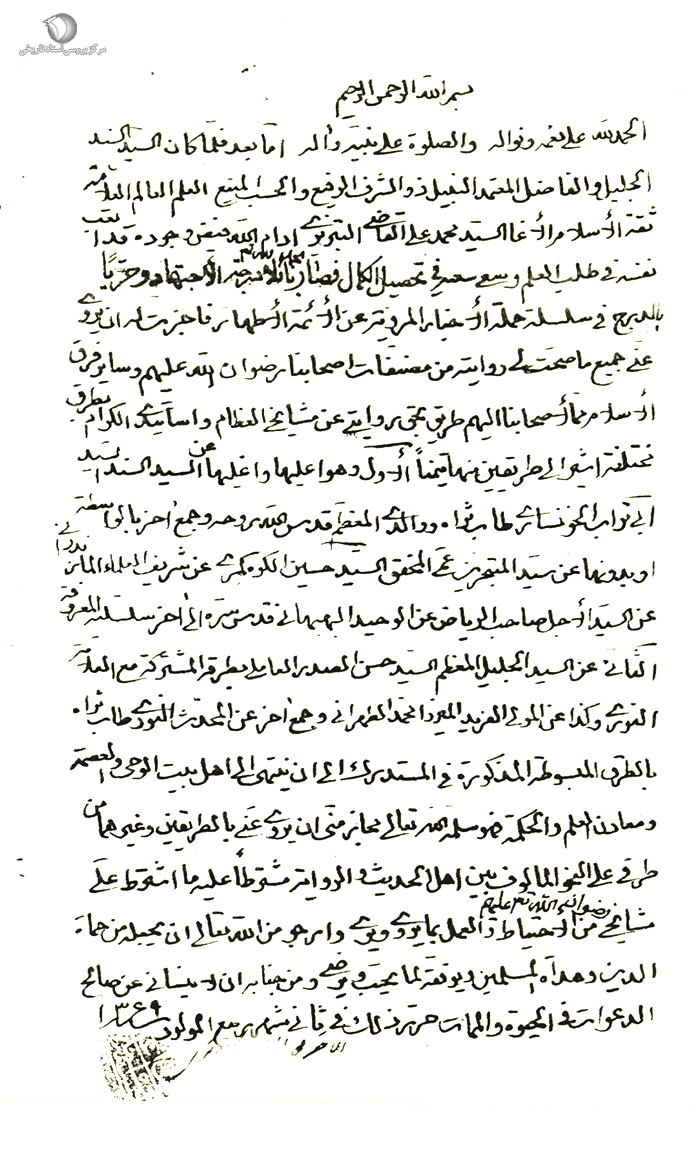 مرکز بررسی اسناد تاریخی
بسم الله الرحمن الرحیم
الحمد لله علی نعمه ونواله والصلوة علی نبیه وآله اما بعد فلما کان السید السند
الجلیل والفاضل المعتمد النبیل ذو الشرف الرفیع والحسب المنیع العلم العالم العلامة
ثقة الاسلام الآغا السید محمد علی القاضی التبریزی ادام الله فیض وجوده قد اتعب
نفسه فی طلب العلم وسعی سعیه فی تحصیل الکمال فصار بحمد الله تع نائلا درجة الاجتهاد وحریا
بالدرج فی سلسلة حملة الاخبار المرویة عن الائمة الاطهار فاجزت له ان یروی
عنی جمیع ما صحت لی روایته من مصنفات اصحابنا رضوان الله علیهم وسایر فرق
الاسلام مما لاصحابنا الیهم طریق بحق روایتی عن مشایخی العظام واساتیدی الکرام بطرق
مختلفة اشیر الی طریقین منها تیمنا الاول وهو اعلیها واغلیها عن السید السند السید
ابی تراب الخونساری طاب ثراه ووالدی المعظم قدس الله روحه وجمع آخر بالواسطة
او بدونها عن سید المتبحرین عمی المحقق السید حسین الکوه کمری عن شریف العلماء المازندرانی
عن السید الاجل صاحب الریاض عن الوحید البهبهانی قدس سره الی آخر سلسلته المعروفة
الثانی عن السید الجلیل المعظم السید حسن الصدر العاملی بطرقه المشترکة مع العلامة
النوری وکذا عن المولی الفرید المیرزا محمد الطهرانی وجمع آخر عن المحدث النوری طاب ثراه
بالطرق المبسوطة المذکورة فی المستدرک الی ان ینتهی الی اهل بیت الوحی والعصمة
ومعادن العلم والحکمة فهو سلمه الله تعالی مجاز منی ان یروی عنی بالطریقین وغیرهما من
طرقی علی النحو المالوف بین اهل الحدیث والروایة مشترطا علیه ما اشترط علی
مشایخی رضوان الله تع علیهم من الاحتیاط فی العمل بما یروی ویری وارجو من الله تعالی ان یجعله من حماة
الدین وهداة المسلمین ویوفقه لما یحب ویرضی ومن جنابه ان لا ینسانی عن صالح
الدعوات فی الحیوة والممات حرر ذلک فی ثانی شهر ربیع المولود ۱۳۶۹
الاحقر